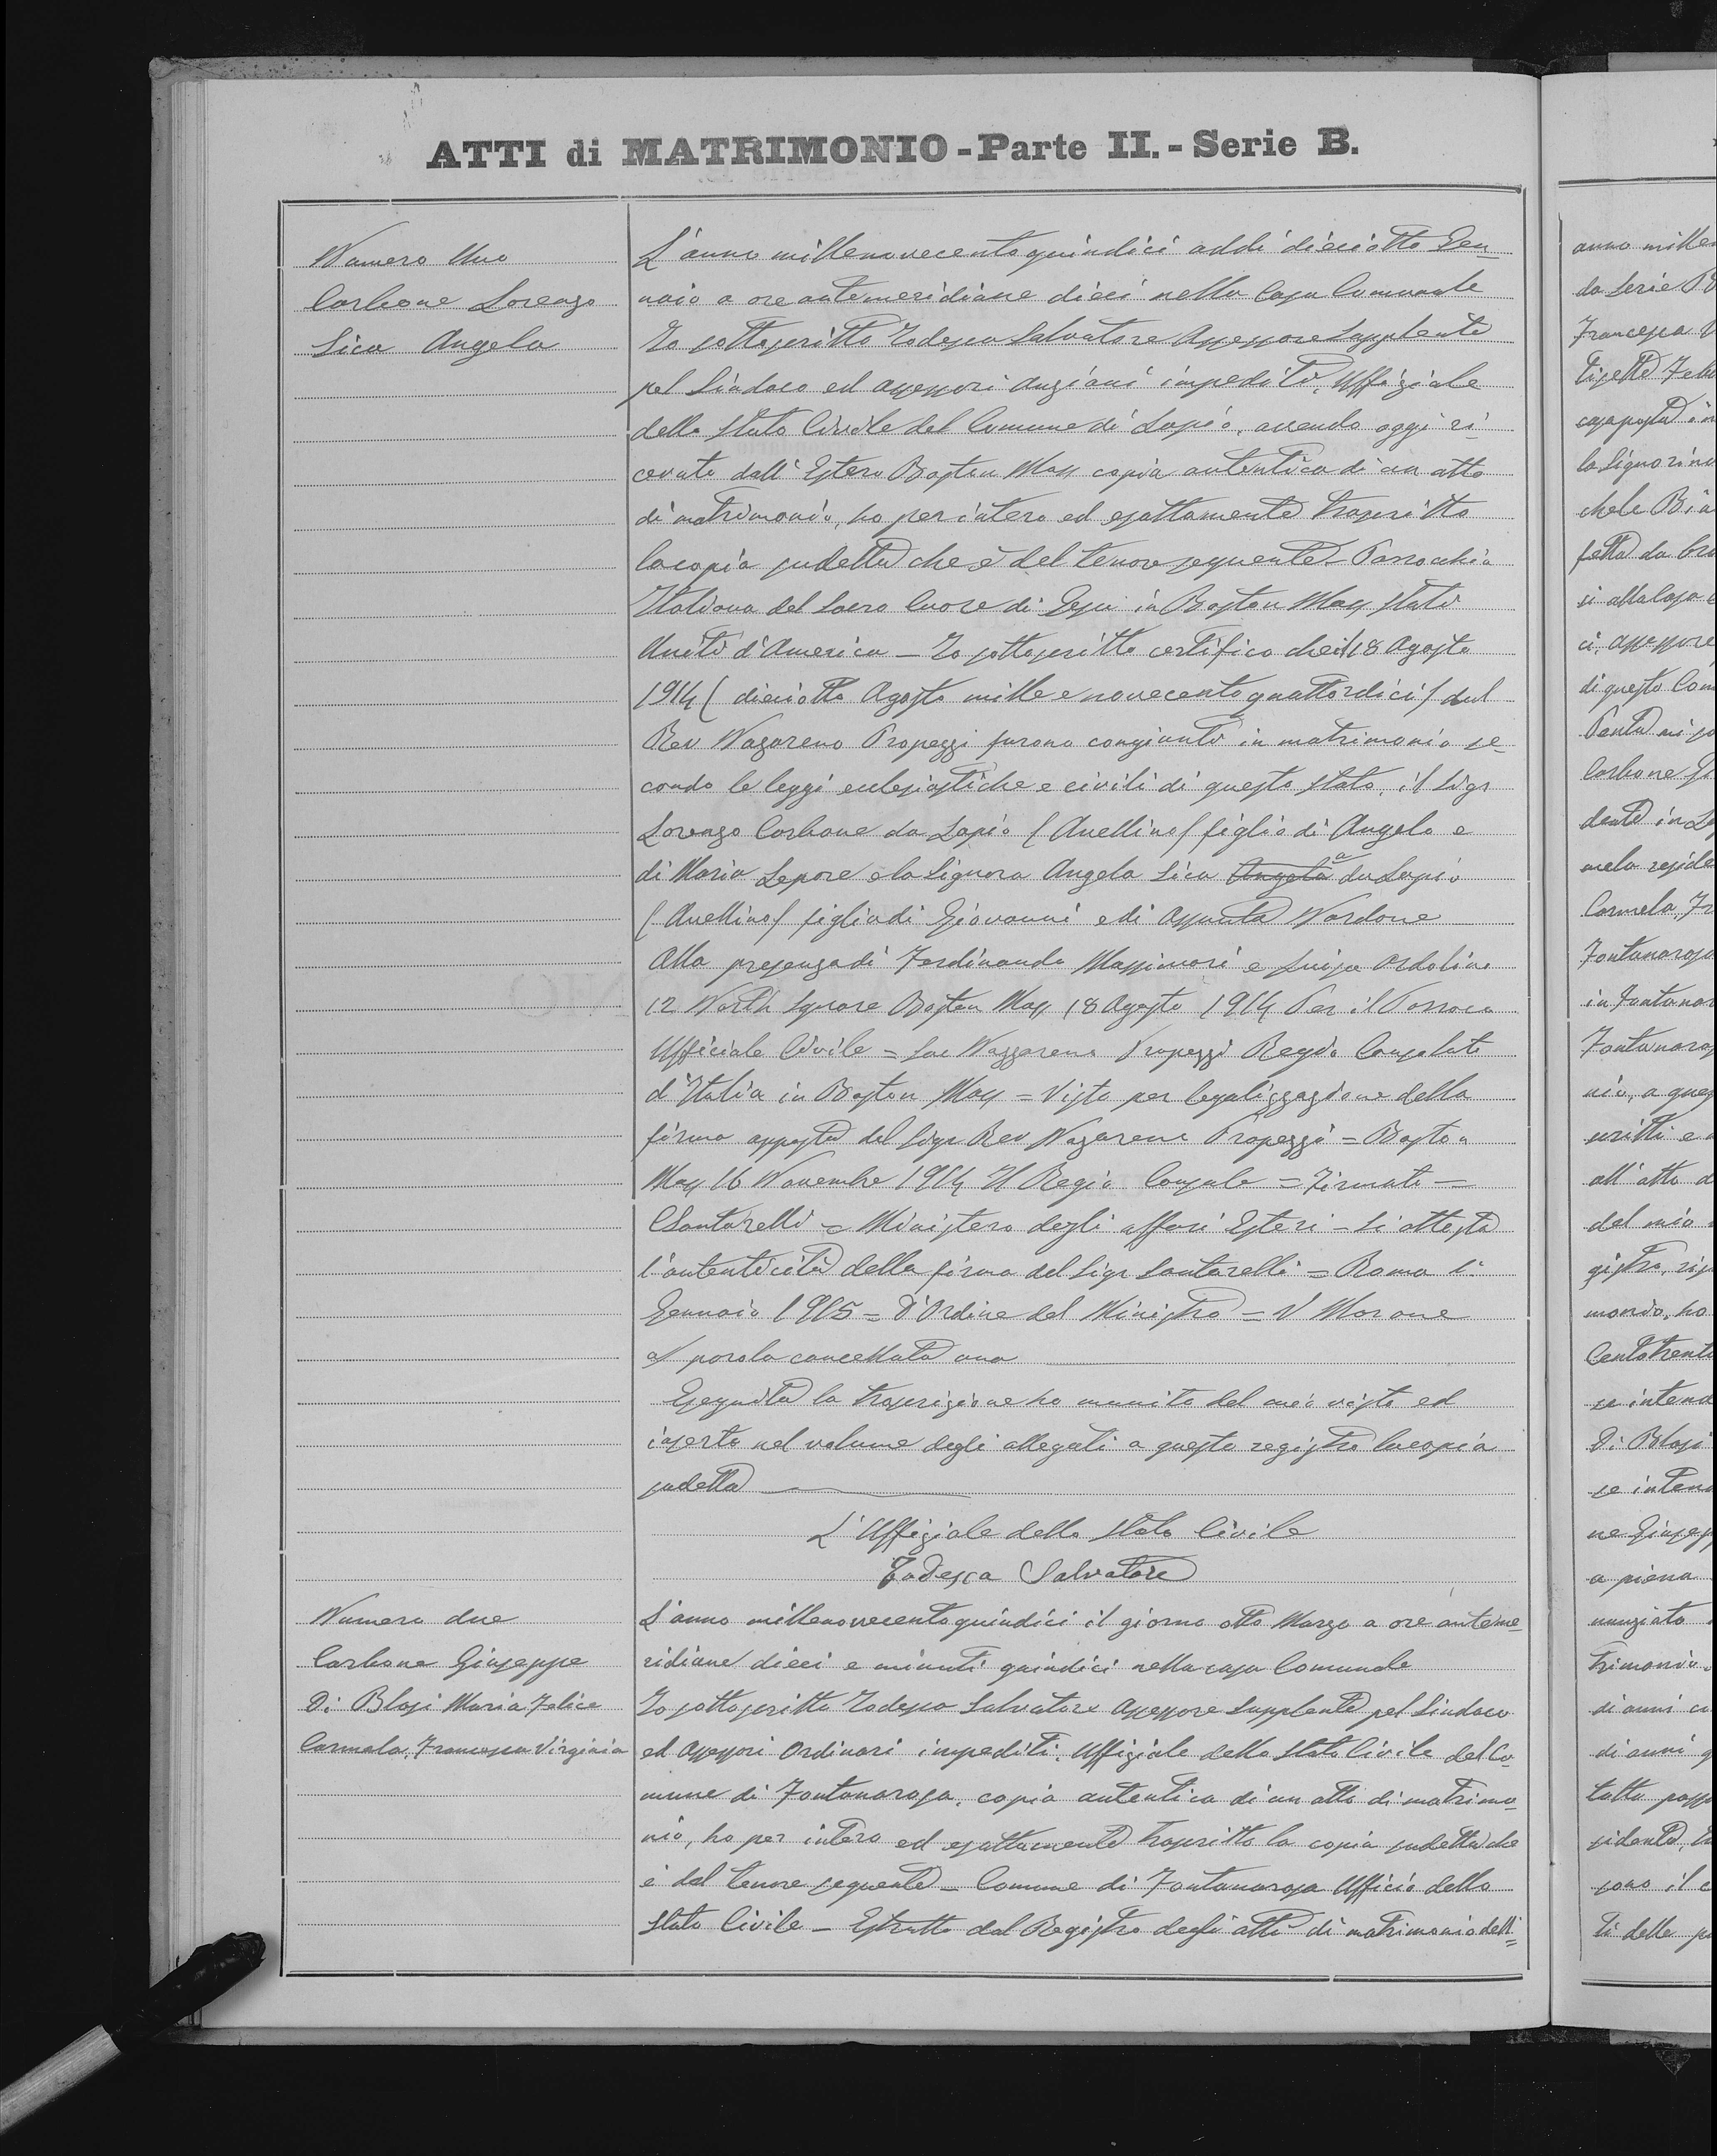 ATTI di MATRIMONIO - Parte II. - Serie B.
Numero Uno
Carbone Lorenzo
Sica Angela
L'anno millenovecentoquindici addì dieciotto Gen-
naio a ore antemeridiane dieci nella Casa Comunale
Io sottoscritto Todesca Salvatore Assessore Supplente
pel Sindaco ed assessori Anziani impediti, Uffiziale
dello Stato Civile del Comune di Lapio, avendo oggi ri-
cevuto dall'Estero Boston Mass copia autentica di un atto
di matrimonio, ho per intero ed esattamente trascritto
la copia sudetta che è del tenore seguente - Parrocchia
Italiana del Sacro Cuore di Gesù in Boston Mass Stati
Uniti d'America - Io sottoscritto certifico che il 18 Agosto
1914 ( dieciotto Agosto mille e novecentoquattordici ) dal
Rev Nazareno Properzi furono congiunti in matrimonio se-
condo le leggi eclesiastiche e civili di questo Stato, il Sigr
Lorenzo Carbone da Lapio ( Avellino ) figlio di Angelo e
di Maria Lepore e la Signora Angela Sica Angela a da Lapio
( Avellino ) figlia di Giovanni e di Assunta Nardone
Alla presenza di Ferdinando Massimori e Luisa Ardolino
12 North Square Boston Mass 18 Agosto 1914 Per il Parroco
Ufficiale Civile = Sac Nazzareno Properzi Regio Consolato
d'Italia in Boston Mass = Visto per legalizzazione della
firma apposta del Sigr Rev Nazareno Properzi = Boston
Mass 16 Novembre 1914 Il Regio Console = Firmato =
Santarelli = Ministero degli affari Esteri = Si attesta
l'autenticità della firma del Sigr Santarelli = Roma li
Gennaio 1915 = D'Ordine del Ministro = V Morone
a/ parola cancellata una
Eseguita la trascrizione ho munito del mio visto ed
inserto nel volume degli allegati a questo registro la copia
sudetta
L'Uffiziale dello Stato Civile
Todesca Salvatore
Numero due
Carbone Giuseppe
Di Blasi Maria Felice
Carmela, Francesca Virginia
L'anno millenovecentoquindici il giorno otto Marzo a ore anteme-
ridiane dieci e minuti quindici nella casa Comunale
Io sottoscritto Todesca Salvatore Assessore Supplente pel Sindaco
ed Assessori Ordinari impediti, Uffiziale dello Stato Civile del Co-
mune di Fontanarosa, copia autentica di un atto di matrimo-
nio, ho per intero ed esattamente trascritto la copia sudetta che
è del tenore seguente - Comune di Fontanarosa Ufficio dello
Stato Civile - Estratto dal Registro degli atti di matrimonio dell'
anno mille
da Serie B
Francesca V
casaposta in
la Signorina
chele Bia
si alla Casa
ci, Assessore
di questo Com
Carbone Gi
mela reside
Carmela, Fr
Fontanarosa
in Fontanar
Fontanaros
nio, a ques
scritti e
all'atto d
del mio
gistro, ris
monio, ho
Centotrenta
se intend
Di Blasi
se intend
ne Giusep
a piena
nunziato
trimonio
di anni
di anni q
tutto poss
sono il c
ti delle p